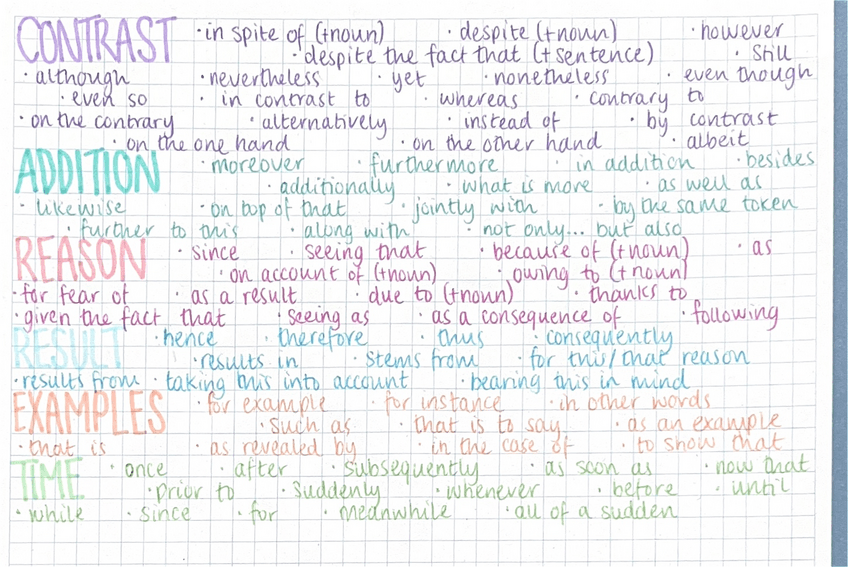 CONTRAST · in spite of (+noun) · despite (+noun) · however
· despite the fact that (+ sentence) · still
· although · nevertheless · yet · nonetheless · even though
· even so · in contrast to · whereas · contrary to
· on the contrary · alternatively · instead of · by contrast
· on the one hand · on the other hand · albeit
ADDITION · moreover · furthermore · in addition · besides
· additionally · what is more · as well as
· likewise · on top of that · jointly with · by the same token
· further to this · along with · not only... but also
REASON · since · seeing that · because of (+noun) · as
· on account of (+noun) · owing to (+noun)
· for fear of · as a result · due to (+noun) · thanks to
· given the fact that · seeing as · as a consequence of · following
RESULT · hence · therefore · thus · consequently
· results in · stems from · for this/that reason
· results from · taking this into account · bearing this in mind
EXAMPLES · for example · for instance · in other words
· such as · that is to say · as an example
· that is · as revealed by · in the case of · to show that
TIME · once · after · subsequently · as soon as · now that
· prior to · suddenly · whenever · before · until
· while · since · for · meanwhile · all of a sudden